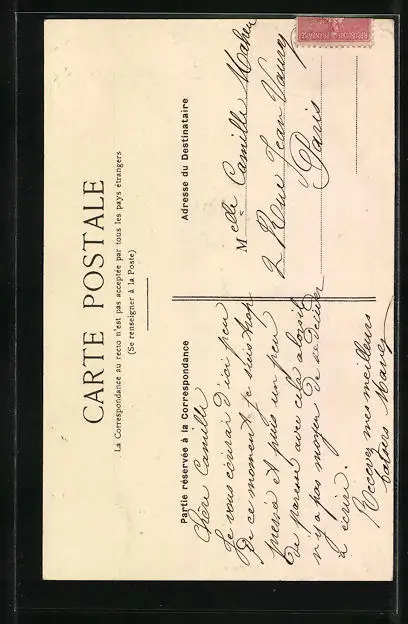 CARTE POSTALE
La Correspondance au recto n'est pas acceptée par tous les pays étrangers
(Se renseigner à la Poste)
Partie réservée à la Correspondance
Chère Camille
Je vous écrirai d'ici peu
de ce moment je suis trop
pressé et puis un peu
de paresse avec cela alors il
n'y a pas moyen de se décider
à écrire.
Recevez mes meilleurs
baisers
Adresse du Destinataire
Melle Camille Maheu
2 Rue Jean
Paris
REPUBLIQUE FRANÇAISE